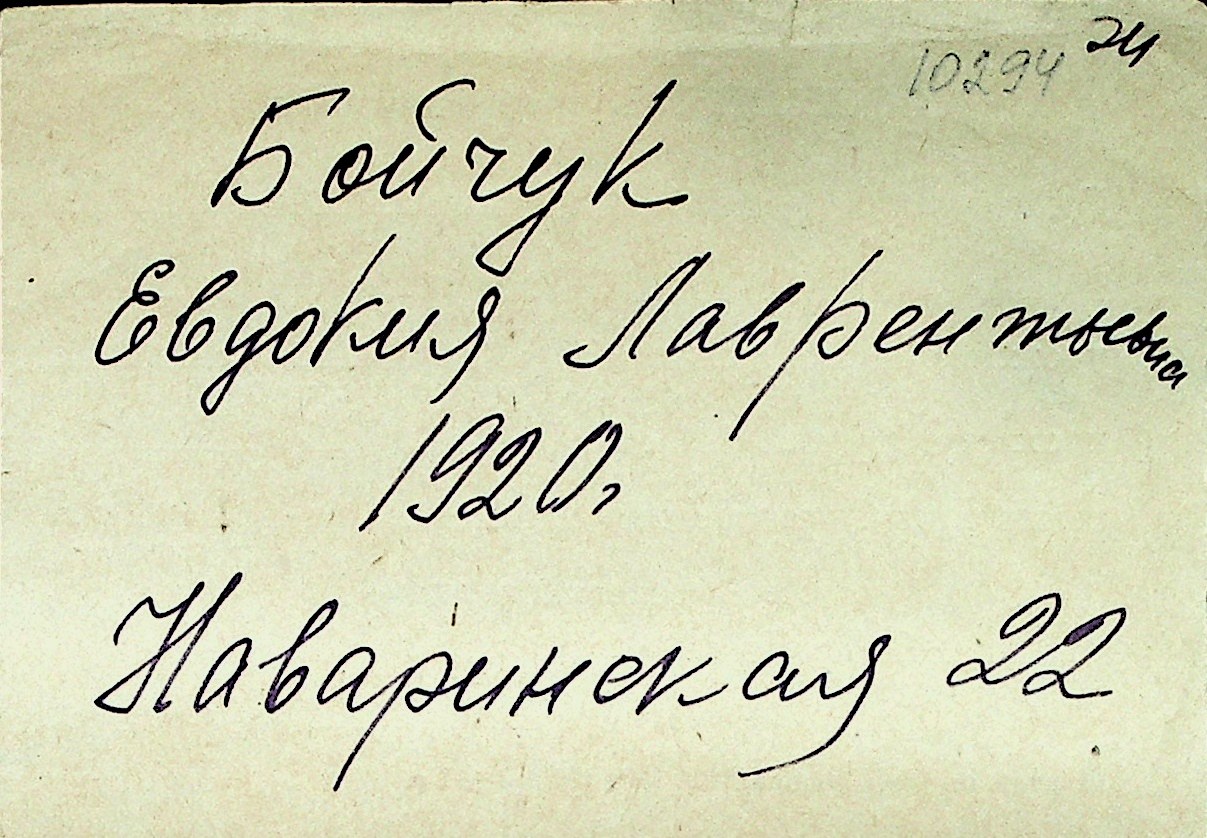 10294
Бойчук
Евдокия Лаврентьевна
1920г
Наваринская 22